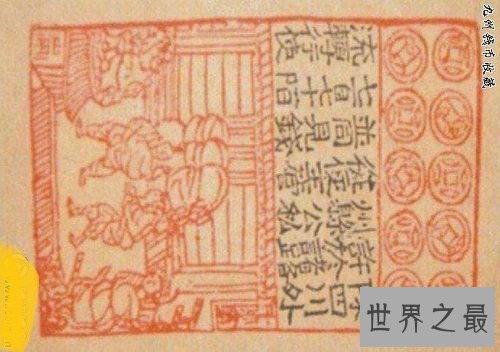 九州钱币收藏
四川外
許於諸路
州縣公私
從便主管
並同見錢
七百七十陌
流轉行使
世界之最